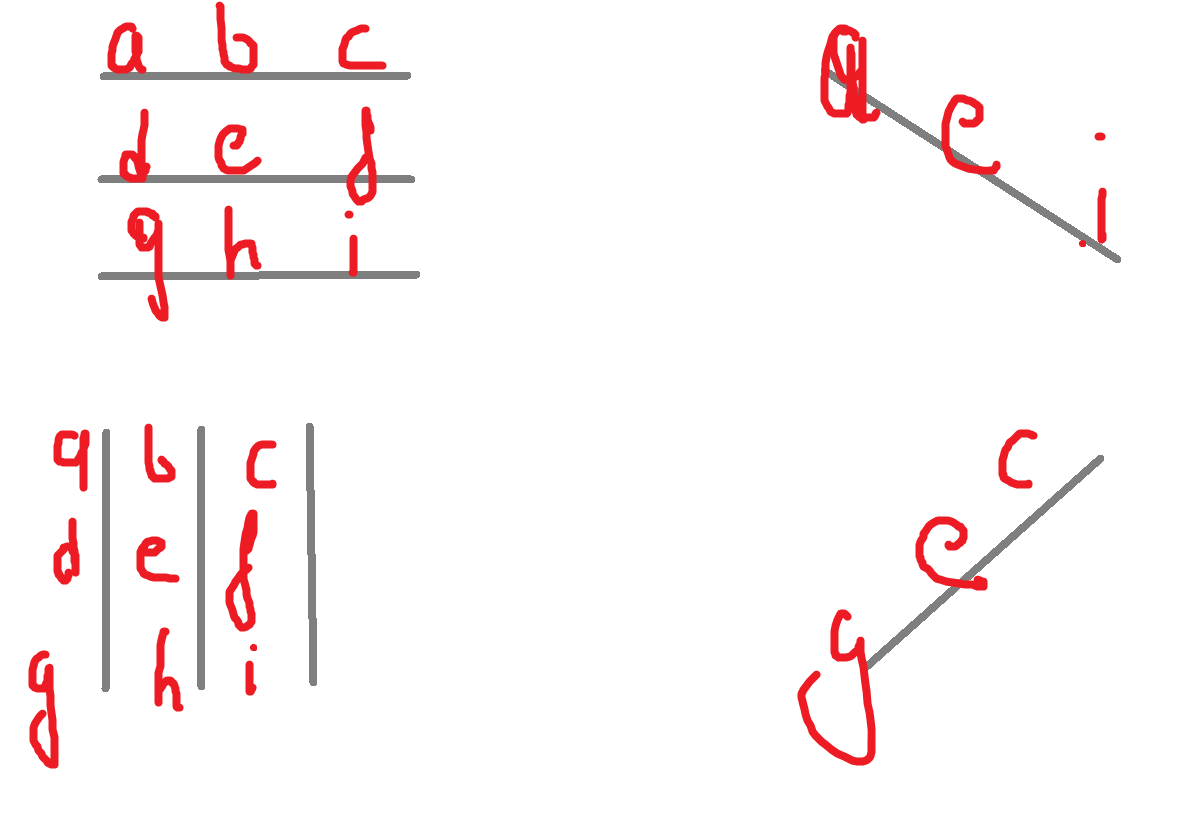 a b c
d e f
g h i
a
e
i
a b c
d e f
g h i
c
e
g